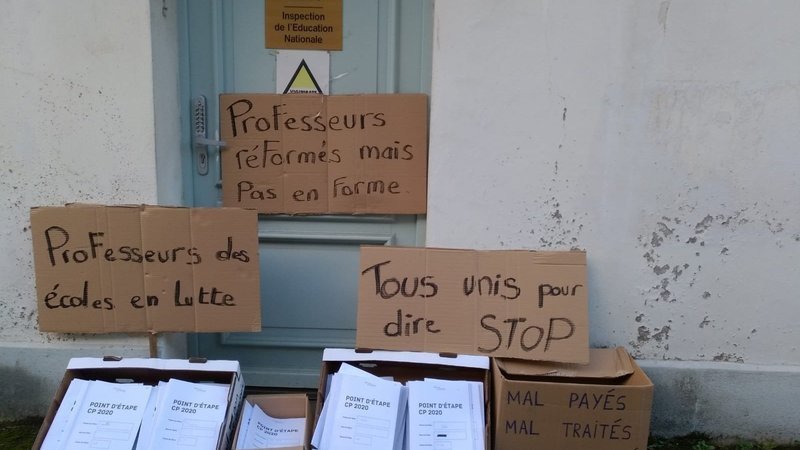 Inspection
de l'Education
Nationale
Professeurs
réformés mais
Pas en forme.
Professeurs des
écoles en lutte
Tous unis pour
dire STOP
MAL PAYÉS
MAL TRAITÉS
POINT D'ÉTAPE
CP 2020
POINT D'ÉTAPE
CP 2020
POINT D'ÉTAPE
POINT D'ÉTAPE
CP 2020
POINT D'ÉTAPE
CP 2020